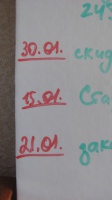 24
30.01. скид
15.01. Ста
21.01. зак